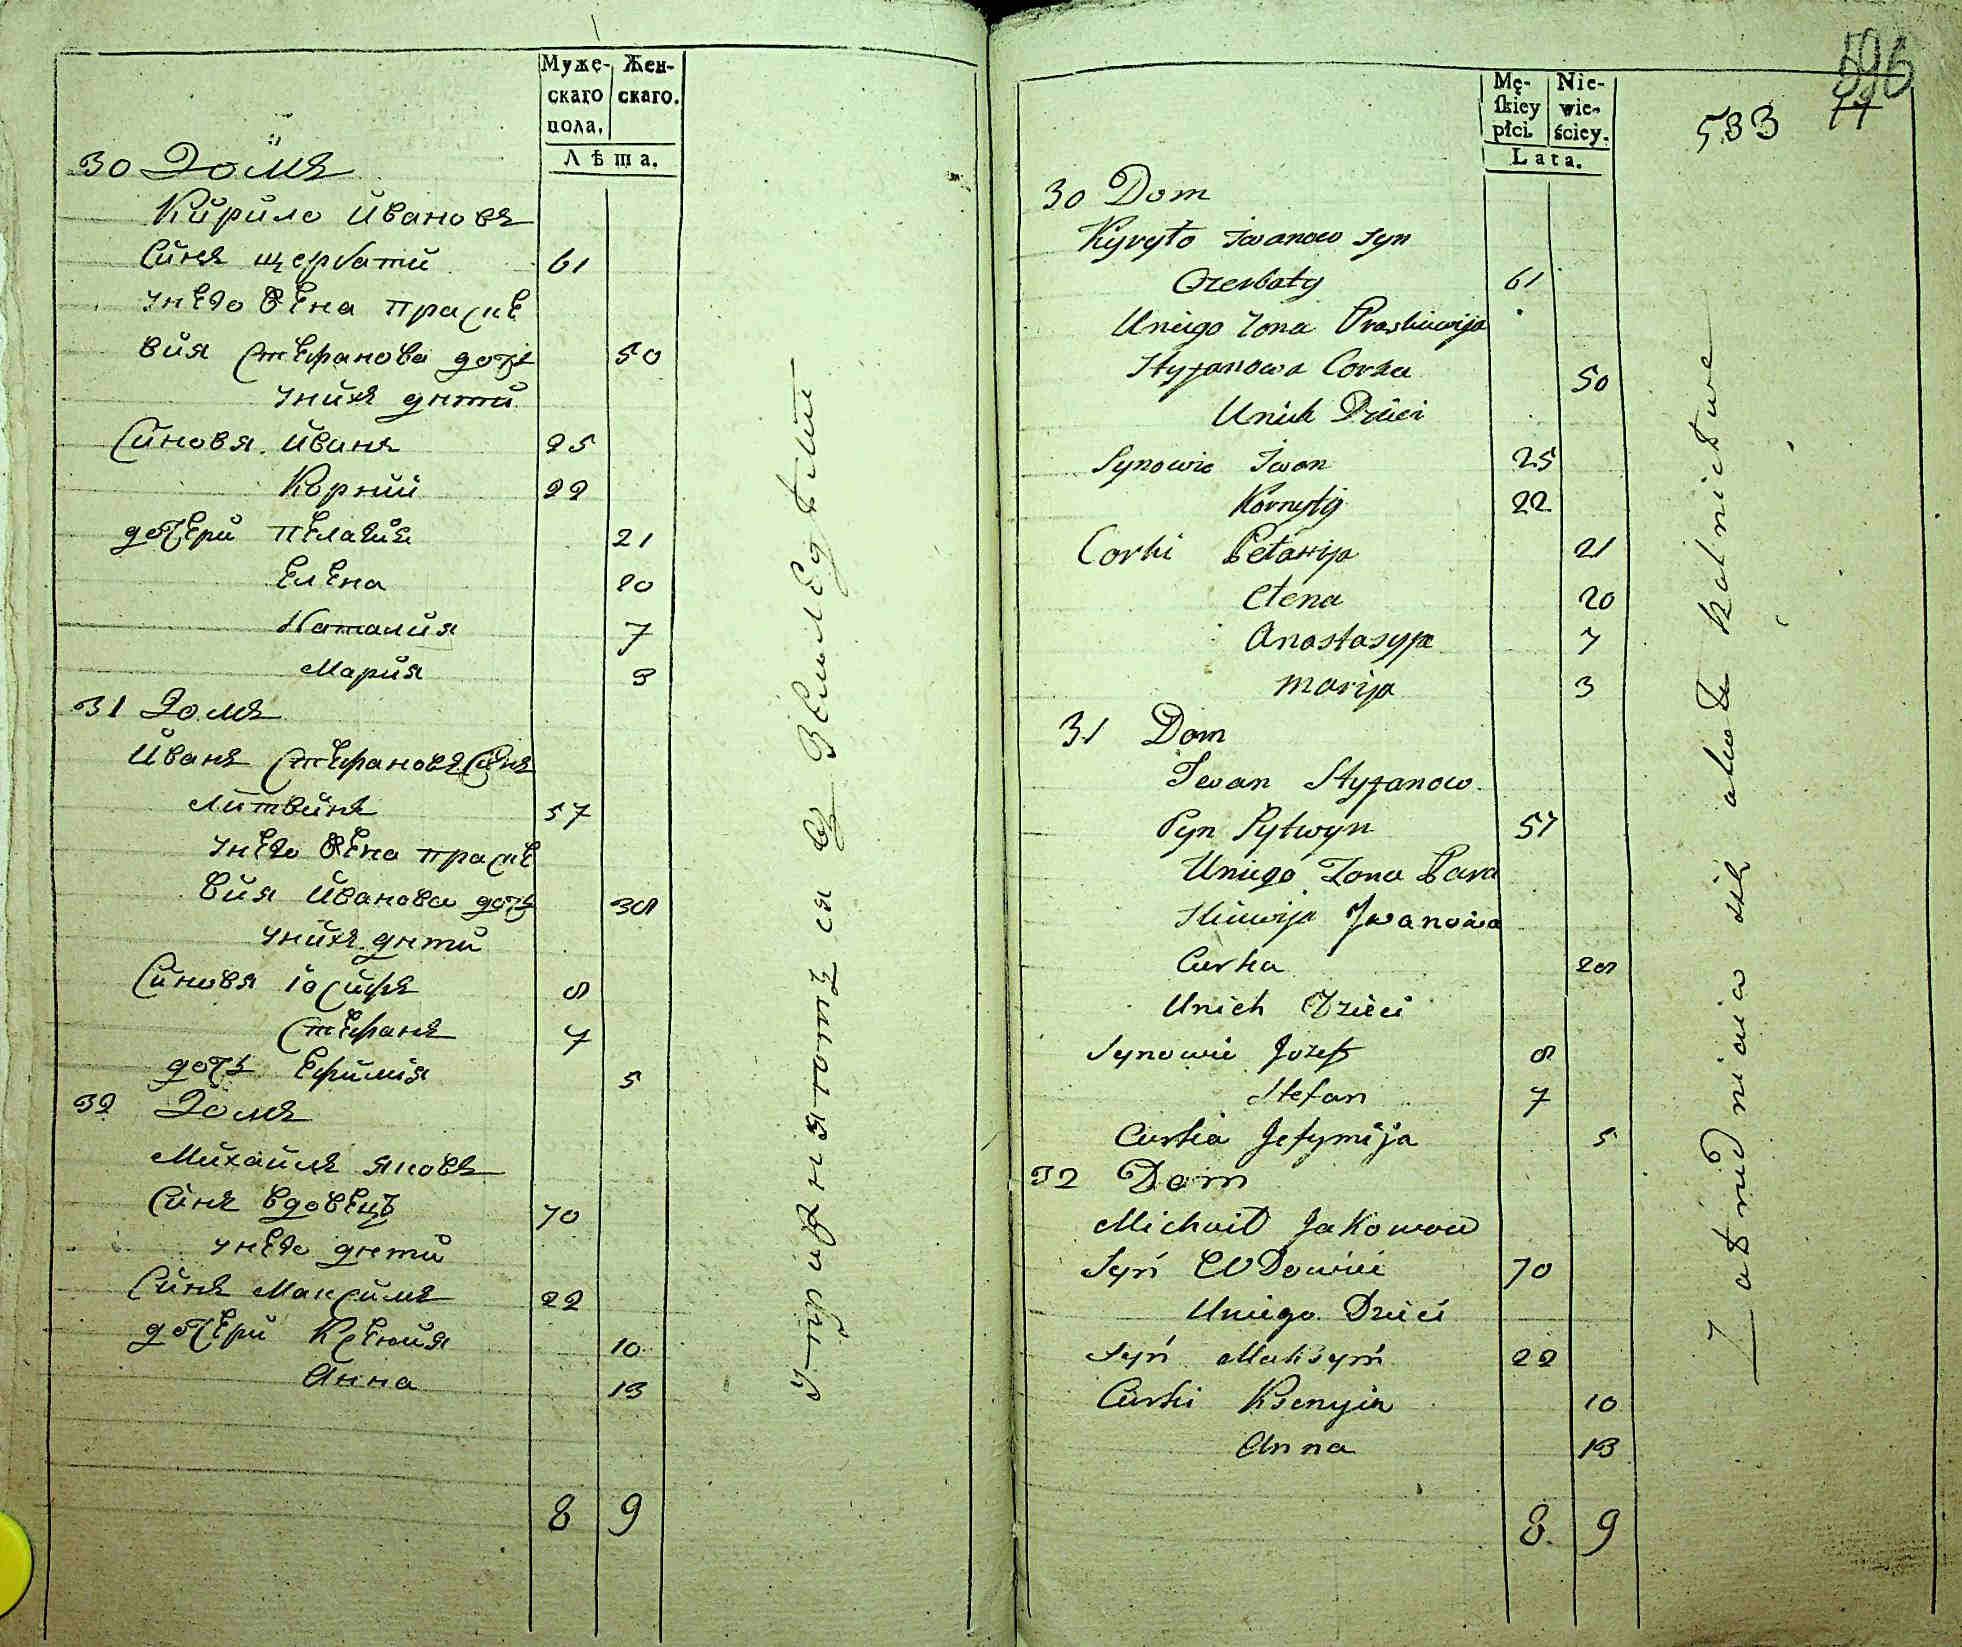 Муже- Жен-
скаго скаго.
пола.
Лѣта.
30 Домъ
Кирило Ивановъ
Синъ щербатий 61
Унего Жена Праске
вия Стефанова дочь 50
Унихъ дети
Синовя Иванъ 25
Корний 22
дочери Пелагия 21
Елена 20
Наталия 7
Мария 3
31 Домъ
Иванъ Стефановъ Синъ
Литвинъ 57
Унего Жена Праске
вия Иванова дочь 38
Унихъ дети
Синовя Iосифъ 8
Стефанъ 7
дочь Ефимия 5
32 Домъ
Михаилъ Яковъ
Синъ вдовецъ 70
Унего дети
Синъ Максимъ 22
дочери Ксения 10
Анна 13
8 9
Упражняются в Земледелии
596
533
Mę- Nie-
skiey wie-
płci ściey.
Lata.
30 Dom
Kyryło Iwanow Syn
Szerbaty 61
Uniego Zona Praskiewija
Styfanowa Corka 50
Unich Dzieci
Synowie Iwan 25
Kornyły 22
Corki Pełahija 21
Elena 20
Anastasyja 7
Marija 3
31 Dom
Iwan Styfanow
Syn Lytwyn 57
Uniego Zona Para
Skiewija Jwanowa
Curka 28
Unich Dzieci
Synowie Jozef 8
Stefan 7
Curka Jefymija 5
32 Dom
Michail Jakowow
Syn Wdowiec 70
Uniego Dzieci
Syn Maksym 22
Curki Ksenyia 10
Anna 13
8 9
Zatrudniaia sie około Rolnictwa